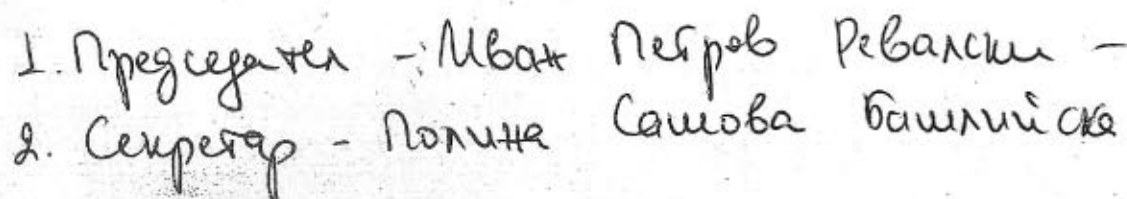 1. Председател - Иван Петров Ревалски -
2. Секретар - Полина Сашова Башлийска